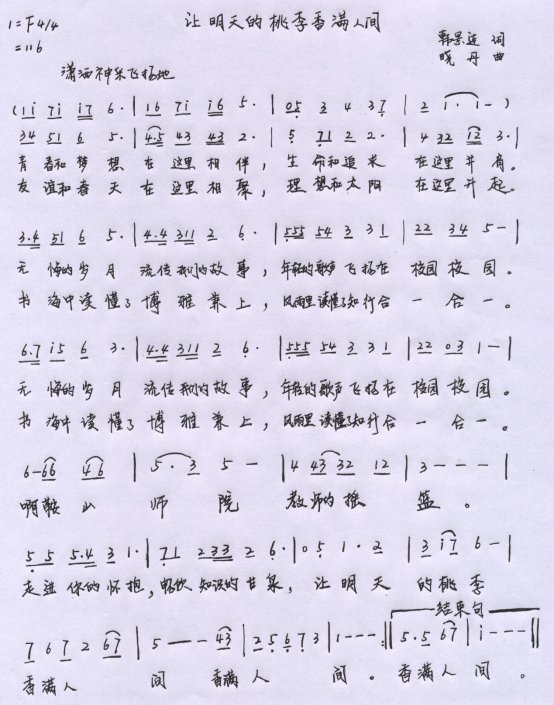 让明天的桃李香满人间
1=F 4/4
=116
韩景连 词
晓丹 曲
潇洒神采飞扬地
(1i 7i i7 6· | 16 7i i6 5· | 05 3 4 37 | 2 1· 1-)
34 51 6 5· | 45 43 43 2· | 5 71 2 2· | 4 32 12 3· |
青春和梦想在这里相伴，生命和追求在这里并肩。
友谊和春天在这里相聚，理想和太阳在这里升起。
3.4 51 6 5· | 4.4 311 2 6· | 555 54 3 31 | 22 34 5- |
无悔的岁月流传着的故事，年轻的歌声飞扬在校园校园。
书海中读懂了博雅兼上，风雨里读懂了知行合一合一。
6.7 i5 6 3· | 4.4 311 2 6· | 555 54 3 31 | 22 03 1- |
无悔的岁月流传着的故事，年轻的歌声飞扬在校园校园。
书海中读懂了博雅兼上，风雨里读懂了知行合一合一。
6-66 46 | 5·3 5- | 4 43 32 12 | 3--- |
啊鞍山师院教师的摇篮。
55 5.4 3 1· | 71 233 2 6· | 05 1·2 | 3 i7 6- |
走进你的怀抱，畅饮知识的甘泉，让明天的桃李
结束句
7 6 7 2 67 | 5---43 | 25673 | 1---:‖ 5·5 67 | i--- ‖
香满人间香满人间。香满人间。